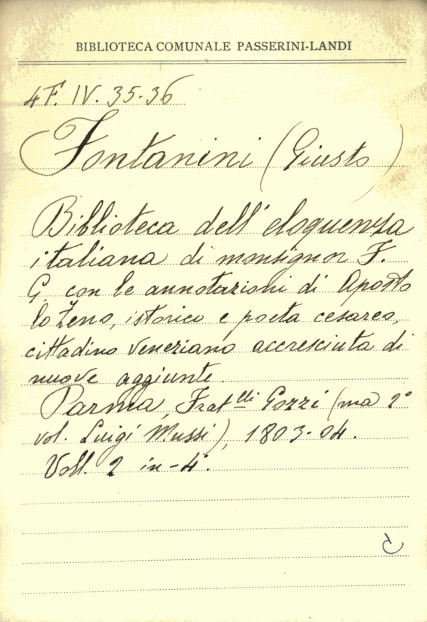 BIBLIOTECA COMUNALE PASSERINI-LANDI
4F. IV. 35-36
Fontanini (Giusto)
Biblioteca dell'eloquenza
italiana di monsignor F.
G. con le annotazioni di Aposto
lo Zeno, istorico e poeta cesareo,
cittadino veneziano accresciuta di
nuove aggiunte.
Parma, Fratelli Gozzi (ma 2°
vol. Luigi Mussi), 1803-04.
Voll. 2 in-4°.